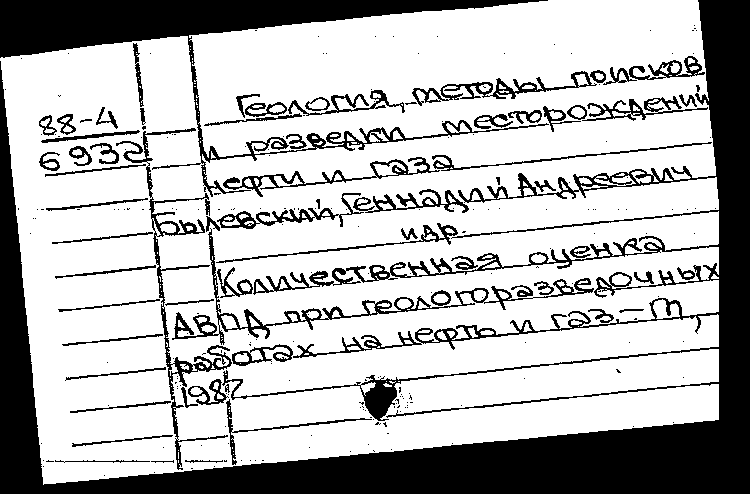 88-4
6932
Геология, методы поисков
и разведки месторождений
нефти и газа
Былевский, Геннадий Андреевич
и др.
Количественная оценка
АВПД при геологоразведочных
работах на нефть и газ. – М,
1987